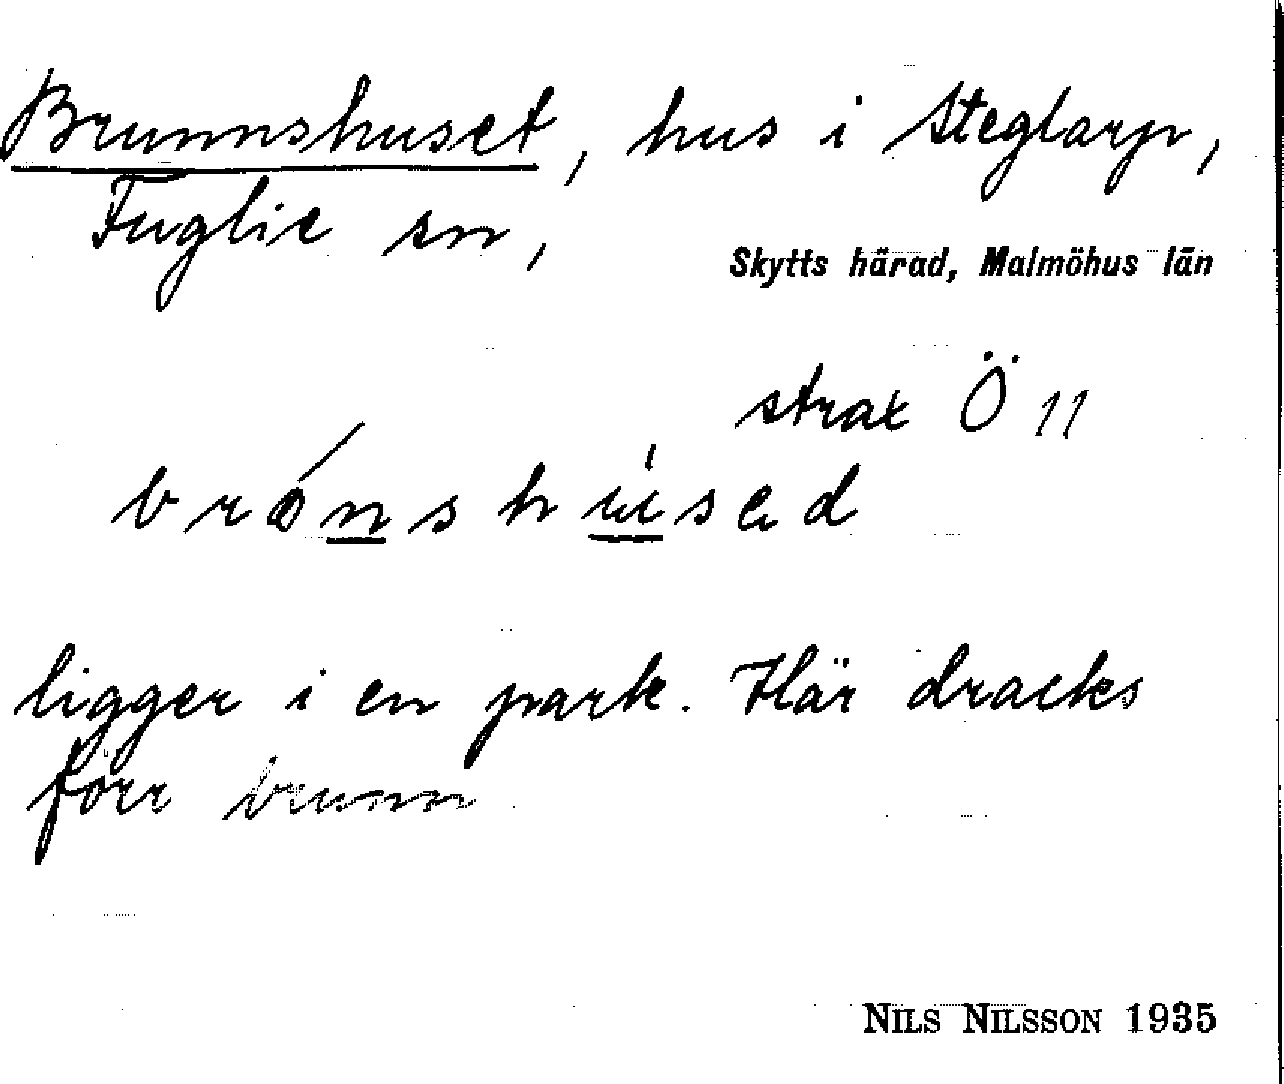 Brunnshuset, hus i Steglarp,
Fuglie sn,
Skytts härad, Malmöhus län
strax Ö 11
ligger i en park. Här dracks
förr brunn
NILS NILSSON 1935